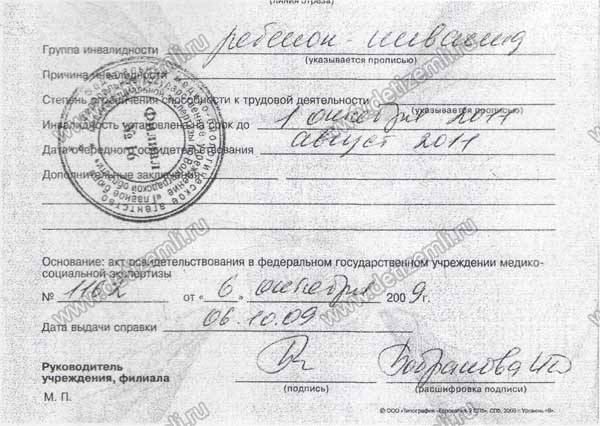 (линия отреза)
Группа инвалидности ребенок-инвалид
(указывается прописью)
Причина инвалидности
Степень ограничения способности к трудовой деятельности
(указывается прописью)
Инвалидность установлена на срок до 1 октября 2011
Дата очередного освидетельствования август 2011
Дополнительные заключения
Филиал
№ 16
Основание: акт освидетельствования в федеральном государственном учреждении медико-
социальной экспертизы
№ 1162 от «6» октября 2009 г.
Дата выдачи справки 06.10.09
Руководитель
учреждения, филиала
(подпись) (расшифровка подписи)
М. П.
www.detizemli.ru